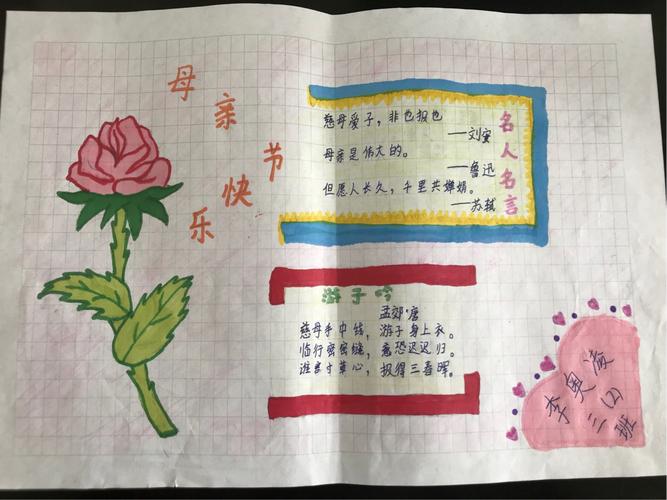 母亲节快乐
名人名言
慈母爱子，非色报也
——刘安
母亲是伟大的。
——鲁迅
但愿人长久，千里共婵娟。
——苏轼
游子吟
孟郊·唐
慈母手中线，游子身上衣。
临行密密缝，意恐迟迟归。
谁言寸草心，报得三春晖。
李奥海
三(2)班